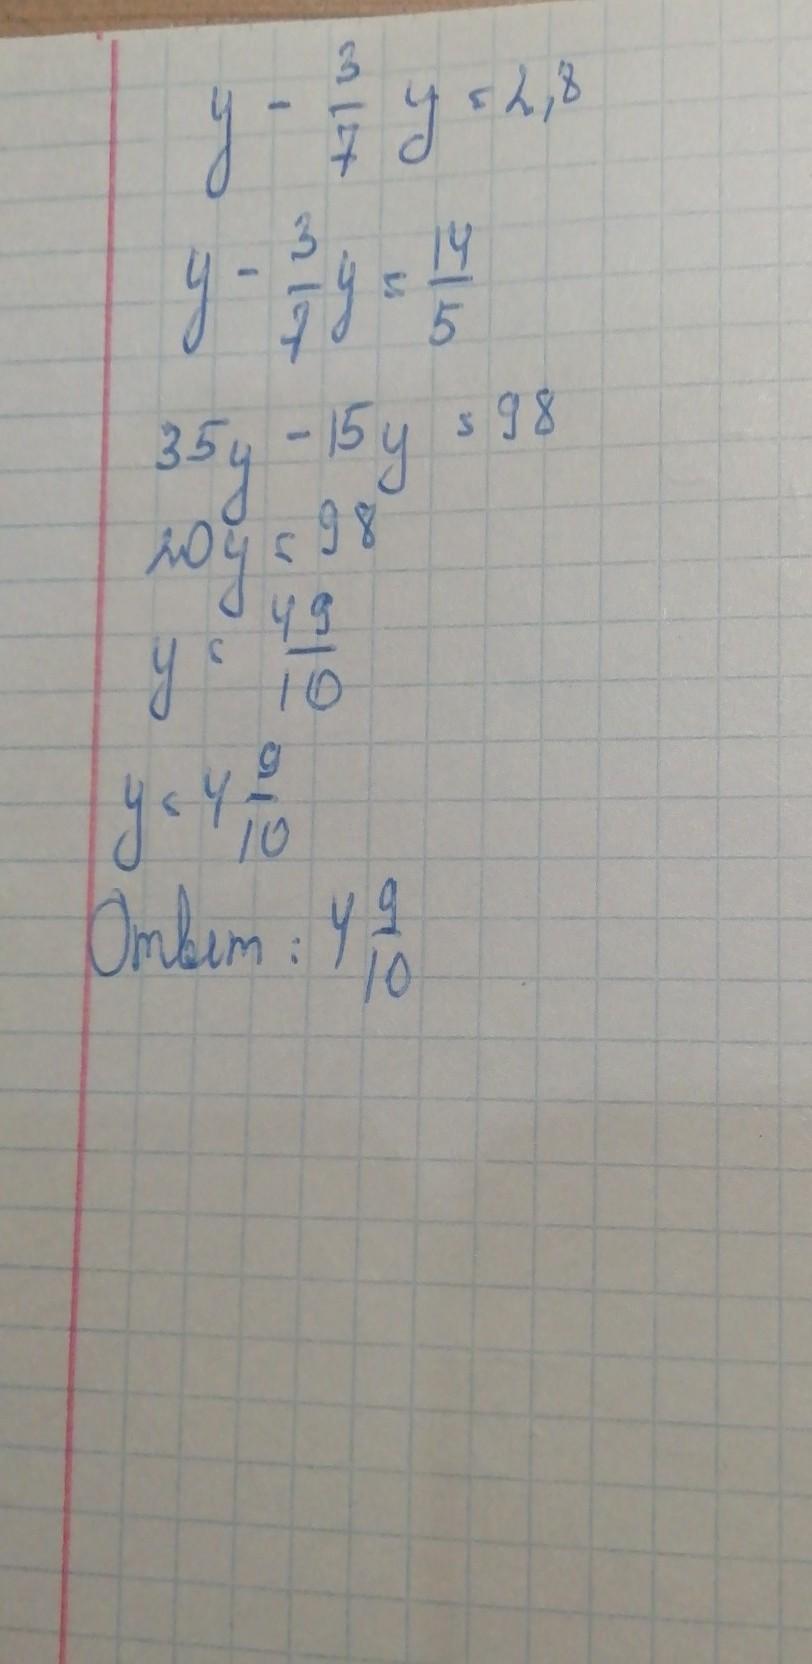 y - 3/7 y = 2,8
y - 3/7 y = 14/5
35y - 15y = 98
20y = 98
y = 49/10
y = 4 9/10
Ответ: 4 9/10